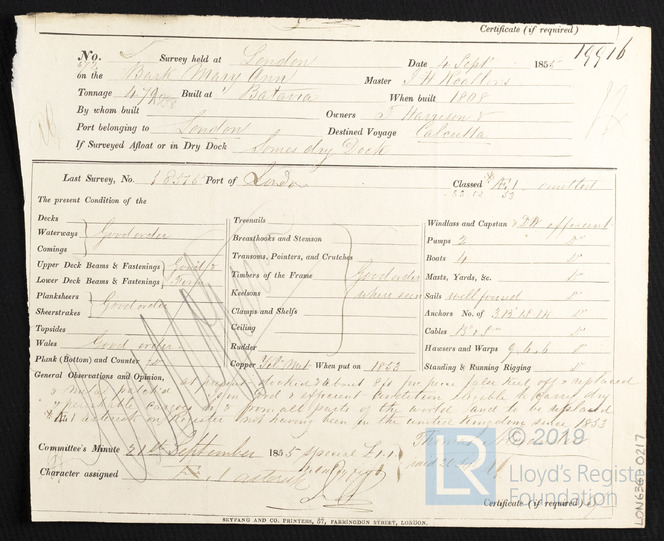 Certificate (if required)
19916
No. Survey held at London Date 4 Sept 1855
on the Bark Mary Ann Master J H
Tonnage 479 Built at Batavia When built 1808
By whom built Owners T Harrison &
Port belonging to London Destined Voyage Calcutta
If Surveyed Afloat or in Dry Dock Somes dry Dock
Last Survey, No. 18515 Port of London Classed Æ1 omitted
The present Condition of the
Decks
Waterways Good order
Comings
Upper Deck Beams & Fastenings Good &
Lower Deck Beams & Fastenings Firm
Planksheers
Sheerstrakes Good order
Topsides
Wales Good order
Plank (Bottom) and Counter do
Treenails
Breasthooks and Stemson
Transoms, Pointers, and Crutches
Timbers of the Frame Good order
Keelsons where seen
Clamps and Shelfs
Ceiling
Rudder
Copper Yel Met When put on 1853
Windlass and Capstan & PW efficient
Pumps 2 Do
Boats 4 Do
Masts, Yards, &c. Do
Sails well found Do
Anchors No. of 3 B 1S 1K Do
Cables Do
Hawsers and Warps 9, 4, 6 Do
Standing & Running Rigging Do
General Observations and Opinion, at present docked & about false keel off & replaced
& metal patched. is in good & efficient condition suitable to carry dry
& perishable cargoes to & from all parts of the world and to be replaced
Æ1 asterisk on Register not having been in the united kingdom since 1853
Committee's Minute 21st September 1855 special £1.1
Character assigned Æ 1 asterisk
© 2019
LR
Lloyd's Register
Foundation
Certificate (if required)
SEYFANG AND CO. PRINTERS, 57, FARRINGDON STREET, LONDON.
LON636-0217